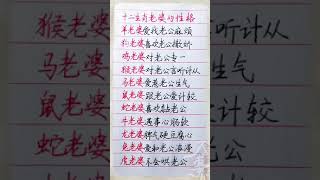 十二生肖老婆的性格
羊老婆爱找老公麻烦
狗老婆喜欢老公撒娇
鸡老婆对老公专一
猴老婆对老公言听计从
马老婆爱惹老公生气
鼠老婆跟老公爱计较
蛇老婆喜欢黏老公
牛老婆遇事心肠软
龙老婆脾气硬豆腐心
兔老婆爱和老公浪漫
虎老婆不会哄老公